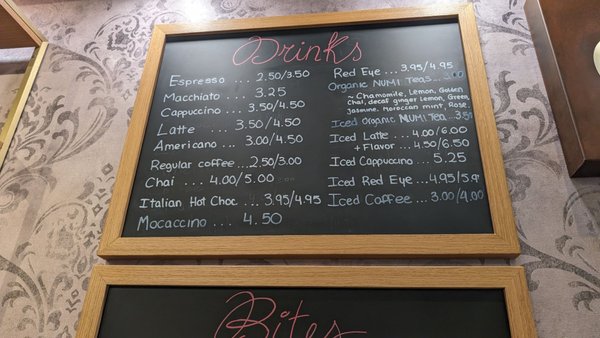 Drinks
Espresso ... 2.50/3.50
Macchiato ... 3.25
Cappuccino ... 3.50/4.50
Latte ... 3.50/4.50
Americano ... 3.00/4.50
Regular coffee ... 2.50/3.00
Chai ... 4.00/5.00
Italian Hot Choc ... 3.95/4.95
Mocaccino ... 4.50
Red Eye ... 3.95/4.95
Organic NUMI Teas ... 3.00
~ Chamomile, Lemon, Golden
Chai, decaf ginger Lemon, Green,
Jasmine, Moroccan mint, Rose.
Iced Organic NUMI Tea ... 3.50
Iced Latte ... 4.00/6.00
+ Flavor ... 4.50/6.50
Iced Cappuccino ... 5.25
Iced Red Eye ... 4.95/5.9
Iced Coffee ... 3.00/4.00
Bites